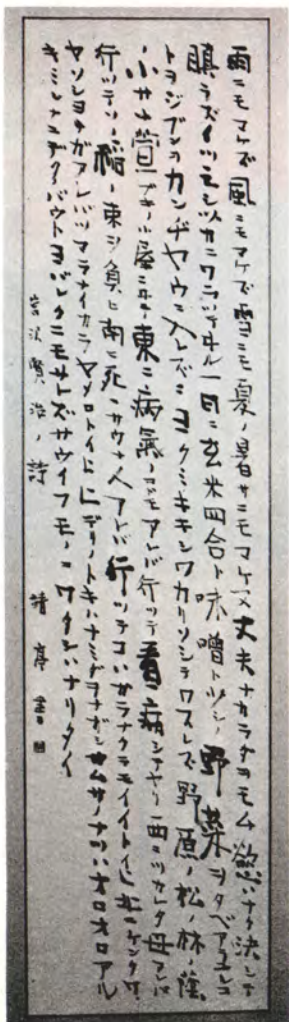 雨ニモマケズ風ニモマケズ雪ニモ夏ノ暑サニモマケヌ丈夫ナカラダヲモチ慾ハナク決シテ
瞋ラズイツモシヅカニワラッテヰル一日ニ玄米四合ト味噌ト少シノ野菜ヲタベアラユルコ
トヲジブンヲカンヂヤウニ入レズニヨクミキキシワカリソシテワスレズ野原ノ松ノ林ノ蔭ノ
小サナ萱ブキノ小屋ニヰテ東ニ病氣ノコドモアレバ行ッテ看病シテヤリ西ニツカレタ母アレバ
行ッテソノ稲ノ束ヲ負ヒ南ニ死ニサウナ人アレバ行ッテコハガラナクテモイイトイヒ北ニケンクヮ
ヤソショウガアレバツマラナイカラヤメロトイヒヒデリノトキハナミダヲナガシサムサノナツハオロオロアル
キミンナニデクノバウトヨバレクニモサレズサウイフモノニワタシハナリタイ
宮沢賢治ノ詩 靖亭書